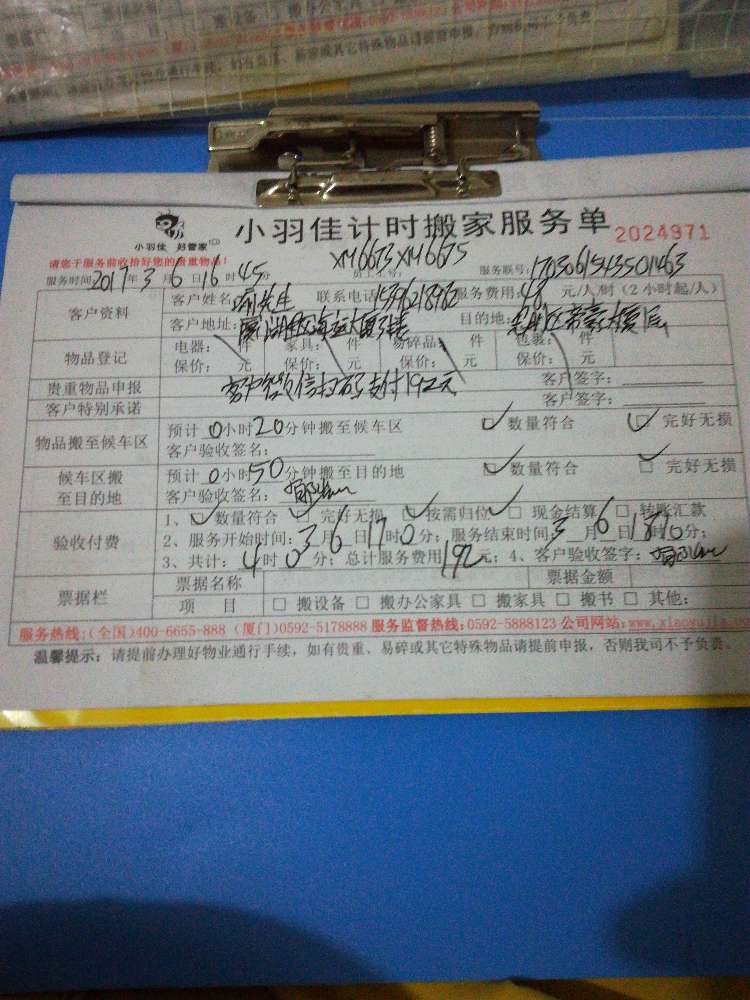 小羽佳 好管家
小羽佳计时搬家服务单 2024971
请您于服务前收拾好您的贵重物品!
XM6673 XM6675
服务时间 2017年3月6日16时45分 员工工号: 服务联号:
客户资料 客户姓名: 先生 联系电话 服务费用:48元/人/时(2小时起/人)
客户地址: 目的地:
物品登记 电器: 件 家具: 件 易碎品: 件 包裹: 件
保价: 元 保价: 元 保价: 元 保价: 元
贵重物品申报 客户 微信扫码支付192元 客户签字:
客户特别承诺 客户签字:
物品搬至候车区 预计0小时20分钟搬至候车区 □数量符合 □完好无损
客户验收签名:
候车区搬至目的地 预计0小时50分钟搬至目的地 □数量符合 □完好无损
客户验收签名:
验收付费 1、□数量符合 □完好无损 □按需归位 □现金结算 □转账汇款
2、服务开始时间:3月6日17时0分;服务结束时间3月6日18时 0分;
3、共计:4时0分;总计服务费用192元;4、客户验收签字:
票据栏 票据名称 票据金额
项 目 □搬设备 □搬办公家具 □搬家具 □搬书 □其他:
服务热线:(全国)400-6655-888 (厦门)0592-5178888 服务监督热线:0592-5888123 公司网站:www.xiaoyujia.com
温馨提示:请提前办理好物业通行手续,如有贵重、易碎或其它特殊物品请提前申报,否则我司不予负责。